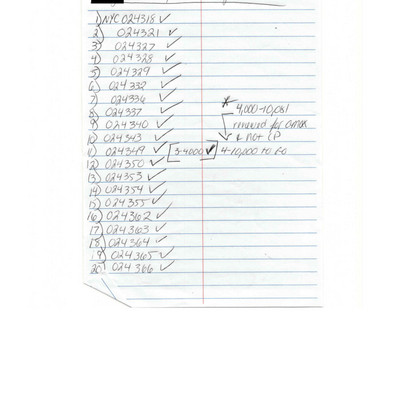 1) NYC 024318 ✓
2) 024321 ✓
3) 024327 ✓
4) 024328 ✓
5) 024329 ✓
6) 024332 ✓
7) 024336 ✓
8) 024337 ✓
9) 024340 ✓
10) 024343 ✓
11) 024349 ✓
12) 024350 ✓
13) 024353 ✓
14) 024354 ✓
15) 024355 ✓
16) 024362 ✓
17) 024363 ✓
18) 024364 ✓
19) 024365 ✓
20) 024366 ✓
* 4,000-10,081
removed for
& not CP
3-4000 ✓
4-10,000 to go